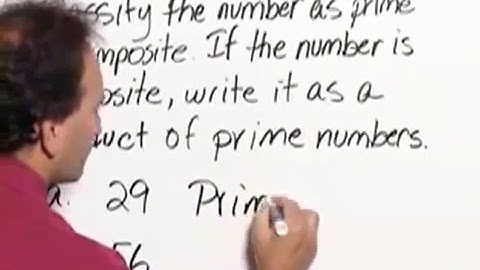 ssify the number as prime
mposite. If the number is
osite, write it as a
uct of prime numbers.
a. 29 Prim
56